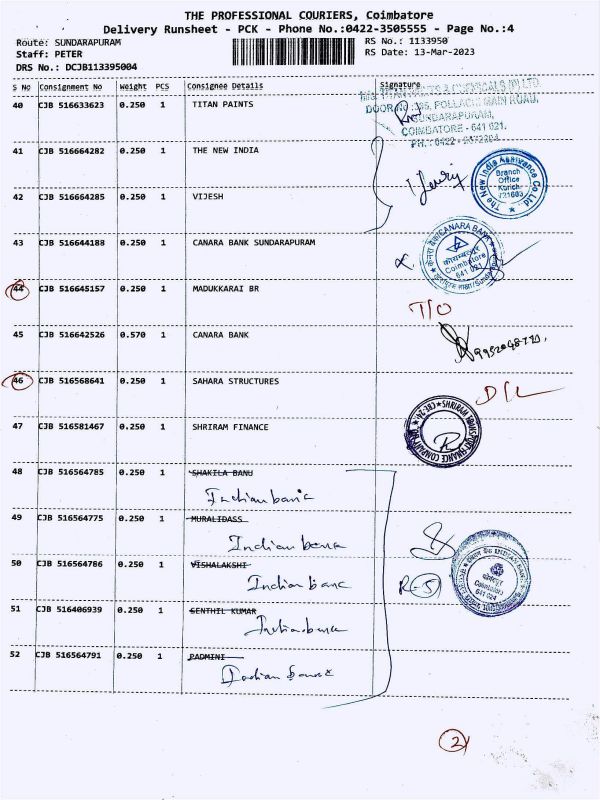 THE PROFESSIONAL COURIERS, Coimbatore
Delivery Runsheet - PCK - Phone No.:0422-3505555 - Page No.:4
Route: SUNDARAPURAM RS No.: 1133950
Staff: PETER RS Date: 13-Mar-2023
DRS No.: DCJB113395004
S No Consignment No Weight PCS Consignee Details Signature
40 CJB 516633623 0.250 1 TITAN PAINTS
SUNDARAPURAM,
COIMBATORE - 641 021.
41 CJB 516664282 0.250 1 THE NEW INDIA
The New India Assurance Co Ltd
Branch
Office
42 CJB 516664285 0.250 1 VIJESH
43 CJB 516644188 0.250 1 CANARA BANK SUNDARAPURAM
CANARA BANK
Coimbatore
641 021
44 CJB 516645157 0.250 1 MADUKKARAI BR
T/O
45 CJB 516642526 0.570 1 CANARA BANK
46 CJB 516568641 0.250 1 SAHARA STRUCTURES
D/L
47 CJB 516581467 0.250 1 SHRIRAM FINANCE
48 CJB 516564785 0.250 1 SHAKILA BANU
Indian bank
49 CJB 516564775 0.250 1 MURALIDASS
Indian bank
50 CJB 516564786 0.250 1 VISHALAKSHI
Indian bank
R=5
INDIAN BANK
51 CJB 516406939 0.250 1 SENTHIL KUMAR
Indian bank
52 CJB 516564791 0.250 1 PADMINI
Indian bank
2